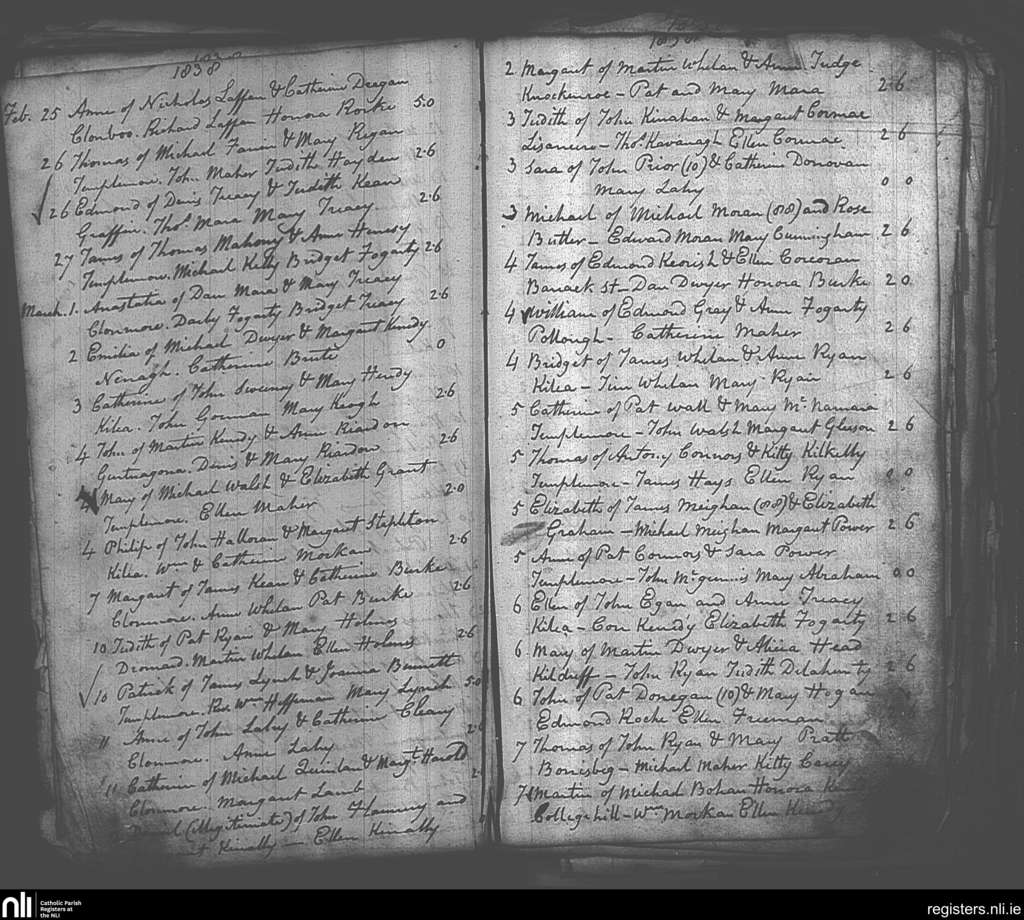 1838
Feb. 25 Anne of Nicholas Laffan & Catherine Deegan
Clonboo. Richard Laffan Honora Rorke 5.0
26 Thomas of Michael & Mary Regan
Templemore. John Maher Judith Hayden 2.6
26 Edmond of Denis Treacy & Judith Kean
Graffin. Thos. Mara Mary Treacy. 2.6
27 James of Thomas Mahony & Anne Henesy
Templemore. Michael Kelly Bridget Fogarty 2.6
March. 1. Anastatia of Dan Mara & Mary Treacy
Clonmore. Darby Fogarty Bridget Treacy 2.6
2 Emilia of Michael Dwyer & Margaret Kenedy
Nenagh. Catherine 0
3 Catherine of John Sweeney & Mary Hendy
Kilea. John Gorman Mary Keogh 2.6
4 John of Martin Kenedy & Anne Riardon
Denis & Mary Riardon 2.6
4 Mary of Michael Walsh & Elizabeth Grant
Templemore. Ellen Maher 2.0
4 Philip of John Halloran & Margaret Stapleton
Kilea. Wm & Catherine Morkan 2.6
7 Margaret of James Kean & Catherine Burke
Clonmore. Anne Whelan Pat Burke 2.6
10 Judith of Pat Ryan & Mary Holmes
Dromard. Martin Whelan Ellen Holmes 2.6
10 Patrick of James Lynch & Joanna Bennett
Templemore. Wm Heffernan Mary Lynch 5.0
11 Anne of John Lahy & Catherine Cleary
Clonmore. Anne Lahy
11 Catherine of Michael Quinlan & Margt. Harold
Clonmore. Margaret Lamb
(illegitimate) of John Flannery and
Kinally — Ellen Kinally
2 Margaret of Martin Whelan & Anne Judge
Knockenroe – Pat and Mary Mara 2.6
3 Judith of John Kinahan & Margaret Cormac
Thos. Kavanagh Ellen Cormac 2 6
3 Sara of John Prior (10) & Catherine Donovan
Mary Lahy 0 0
3 Michael of Michael Moran (88) and Rose
Butler – Edward Moran Mary Cunningham 2 6
4 James of Edmond Keorish & Ellen Corcoran
Barrack St – Dan Dwyer Honora Burke 2 0
4 William of Edmond Gray & Anne Fogarty
Pollough – Catherine Maher 2 6
4 Bridget of James Whelan & Anne Ryan
Kilea – Tim Whelan Mary Ryan 2 6
5 Catherine of Pat Wall & Mary Mc Namara
Templemore – John Walsh Margaret Gleeson 2 6
5 Thomas of Antony Connors & Kitty Kilkelly
Templemore – James Hays Ellen Ryan 0 0
5 Elizabeth of James Meighan (88) & Elizabeth
Graham – Michael Meighan Margaret Power 2 6
5 Anne of Pat Connors & Sara Power
Templemore – John Mary Abraham 0 0
6 Ellen of John Egan and Anne Treacy
Kilea – Con Kenedy Elizabeth Fogarty 2 6
6 Mary of Martin Dwyer & Alicia Head
Kilduff – John Ryan Judith Delahunty 2 6
6 John of Pat Donegan (10) & Mary Hogan
Edmond Roche Ellen Freeman
7 Thomas of John Ryan & Mary Pratt
Borrisbeg – Michael Maher Kitty Carey
7 Martin of Michael Bohan Honora
College hill – Wm Morkan Ellen
nli Catholic Parish
Registers at
the NLI
registers.nli.ie